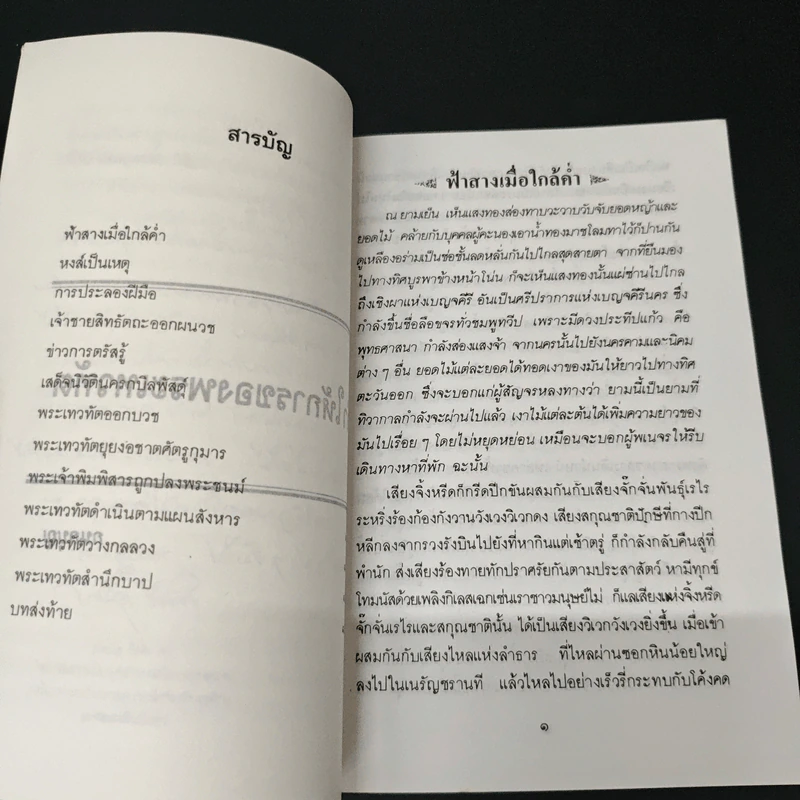 สารบัญ
ฟ้าสางเมื่อใกล้ค่ำ
หงส์เป็นเหตุ
การประลองฝีมือ
เจ้าชายสิทธัตถะออกผนวช
ข่าวการตรัสรู้
เสด็จนิวัตินครกบิลพัสดุ์
พระเทวทัตออกบวช
พระเทวทัตยุยงอชาตศัตรูกุมาร
พระเจ้าพิมพิสารถูกปลงพระชนม์
พระเทวทัตดำเนินตามแผนสังหาร
พระเทวทัตวางกลลวง
พระเทวทัตสำนึกบาป
บทส่งท้าย
ฟ้าสางเมื่อใกล้ค่ำ
ณ ยามเย็น เห็นแสงทองส่องทาบวะวาบวับจับยอดหญ้าและ
ยอดไม้ คล้ายกับบุคคลผู้คะนองเอาน้ำทองมาชโลมทาไว้ก็ปานกัน
ดูเหลืองอร่ามเป็นช่อชั้นลดหลั่นกันไปไกลสุดสายตา จากที่ยืนมอง
ไปทางทิศบูรพาข้างหน้าโน่น ก็จะเห็นแสงทองนั้นแผ่ซ่านไปไกล
ถึงเชิงผาแห่งเบญจคีรี อันเป็นศรีปราการแห่งเบญจคีรีนคร ซึ่ง
กำลังขึ้นชื่อลือขจรทั่วชมพูทวีป เพราะมีดวงประทีปแก้ว คือ
พุทธศาสนา กำลังส่องแสงจ้า จากนครนั้นไปยังนครคามและนิคม
ต่าง ๆ อื่น ยอดไม้แต่ละยอดได้ทอดเงาของมันให้ยาวไปทางทิศ
ตะวันออก ซึ่งจะบอกแก่ผู้สัญจรหลงทางว่า ยามนี้เป็นยามที่
ทิวากาลกำลังจะผ่านไปแล้ว เงาไม้แต่ละต้นได้เพิ่มความยาวของ
มันไปเรื่อย ๆ โดยไม่หยุดหย่อน เหมือนจะบอกผู้พเนจรให้รีบ
เดินทางหาที่พัก ฉะนั้น
เสียงจิ้งหรีดก็กรีดปีกขันผสมกันกับเสียงจั๊กจั่นพันธุ์เรไร
ระหริ่งร้องก้องกังวานวังเวงวิเวกดง เสียงสกุณชาติปักษีที่กางปีก
หลีกลงจากรวงรังบินไปยังที่หากินแต่เช้าตรู่ ก็กำลังกลับคืนสู่ที่
พำนัก ส่งเสียงร้องทายทักปราศรัยกันตามประสาสัตว์ หามีทุกข์
โทมนัสด้วยเพลิงกิเลสเฉกเช่นเราชาวมนุษย์ไม่ ก็แลเสียงแห่งจิ้งหรีด
จั๊กจั่นเรไรและสกุณชาตินั้น ได้เป็นเสียงวิเวกวังเวงยิ่งขึ้น เมื่อเข้า
ผสมกันกับเสียงไหลแห่งลำธาร ที่ไหลผ่านซอกหินน้อยใหญ่
ลงไปในเนรัญชรานที แล้วไหลไปอย่างเร็วรี่กระทบกับโค้งคด
๑